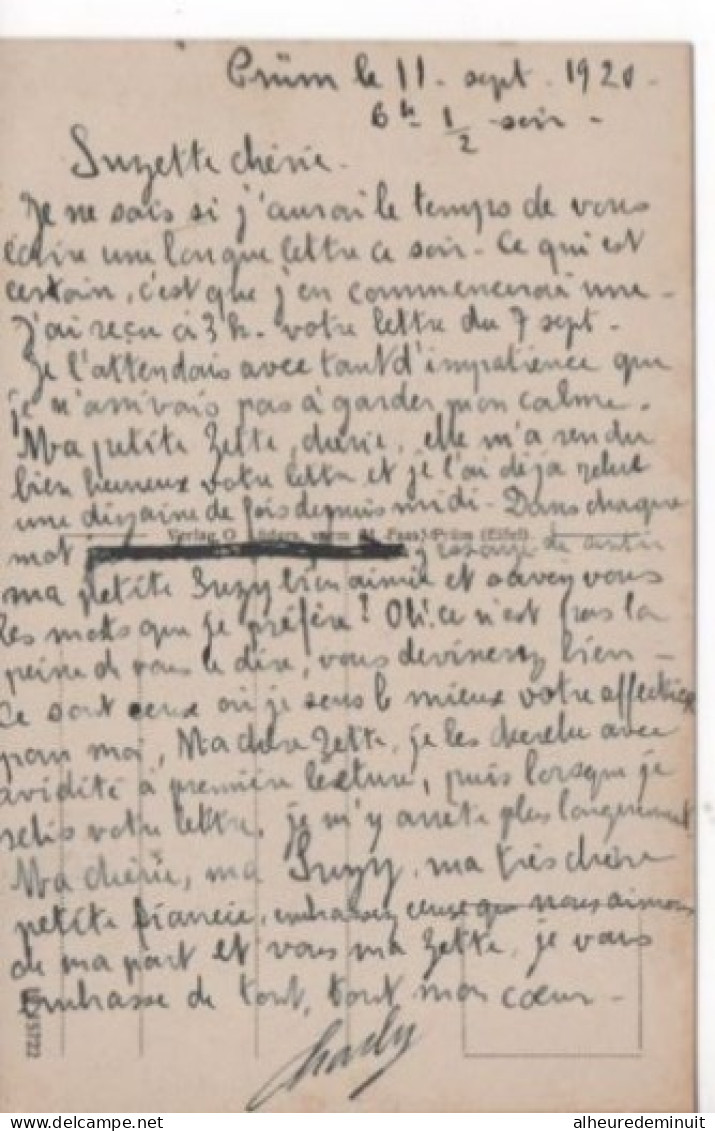 Prüm le 11 - sept - 1920 -
6h 1/2 - soir -
Suzette chérie -
Je ne sais si j'aurai le temps de vous
écrire une longue lettre ce soir - Ce qui est
certain, c'est que j'en commencerai une -
J'ai reçu à 3 h - votre lettre du 7 sept -
Je l'attendais avec tant d'impatience que
je n'arrivais pas à garder mon calme -
Ma petite Zette, chérie, elle m'a rendu
bien heureux votre lettre et je l'ai déjà relue
une dizaine de fois depuis midi - Dans chaque
Verlag O. vorm. M. Faas) Prüm (Eifel)
mot de sentir
ma petite Suzy bien aimée et savez vous
les mots que je préfère ? Oh! ce n'est pas la
peine de vous le dire, vous devinerez bien -
Ce sont ceux où je sens le mieux votre affection
pour moi, Ma chère Zette, je les cherche avec
avidité à première lecture, puis lorsque je
relis votre lettre, je m'y arrête plus longuement
Ma chérie, ma Suzy, ma très chère
petite fiancée, embrassez ceux que nous aimons
de ma part et vous ma Zette, je vous
embrasse de tout, tout mon cœur -
Charly
5722
alheuredeminuit